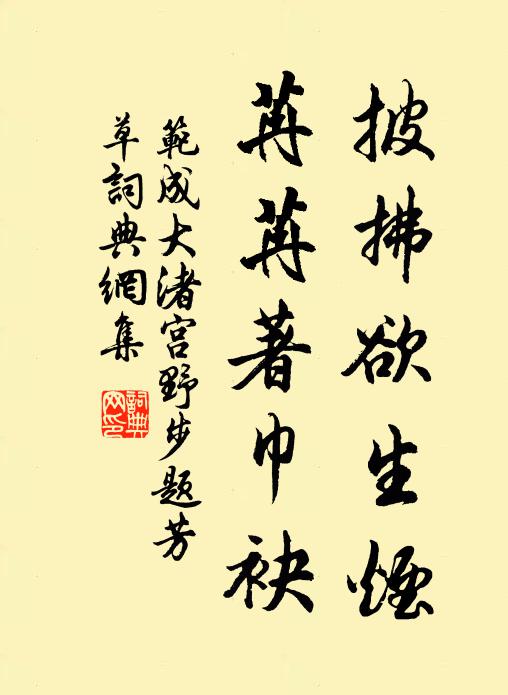 披拂欲生煙
苒苒著巾袂
範成大渚宮野步題芳
草詞典網集
詞典
网印